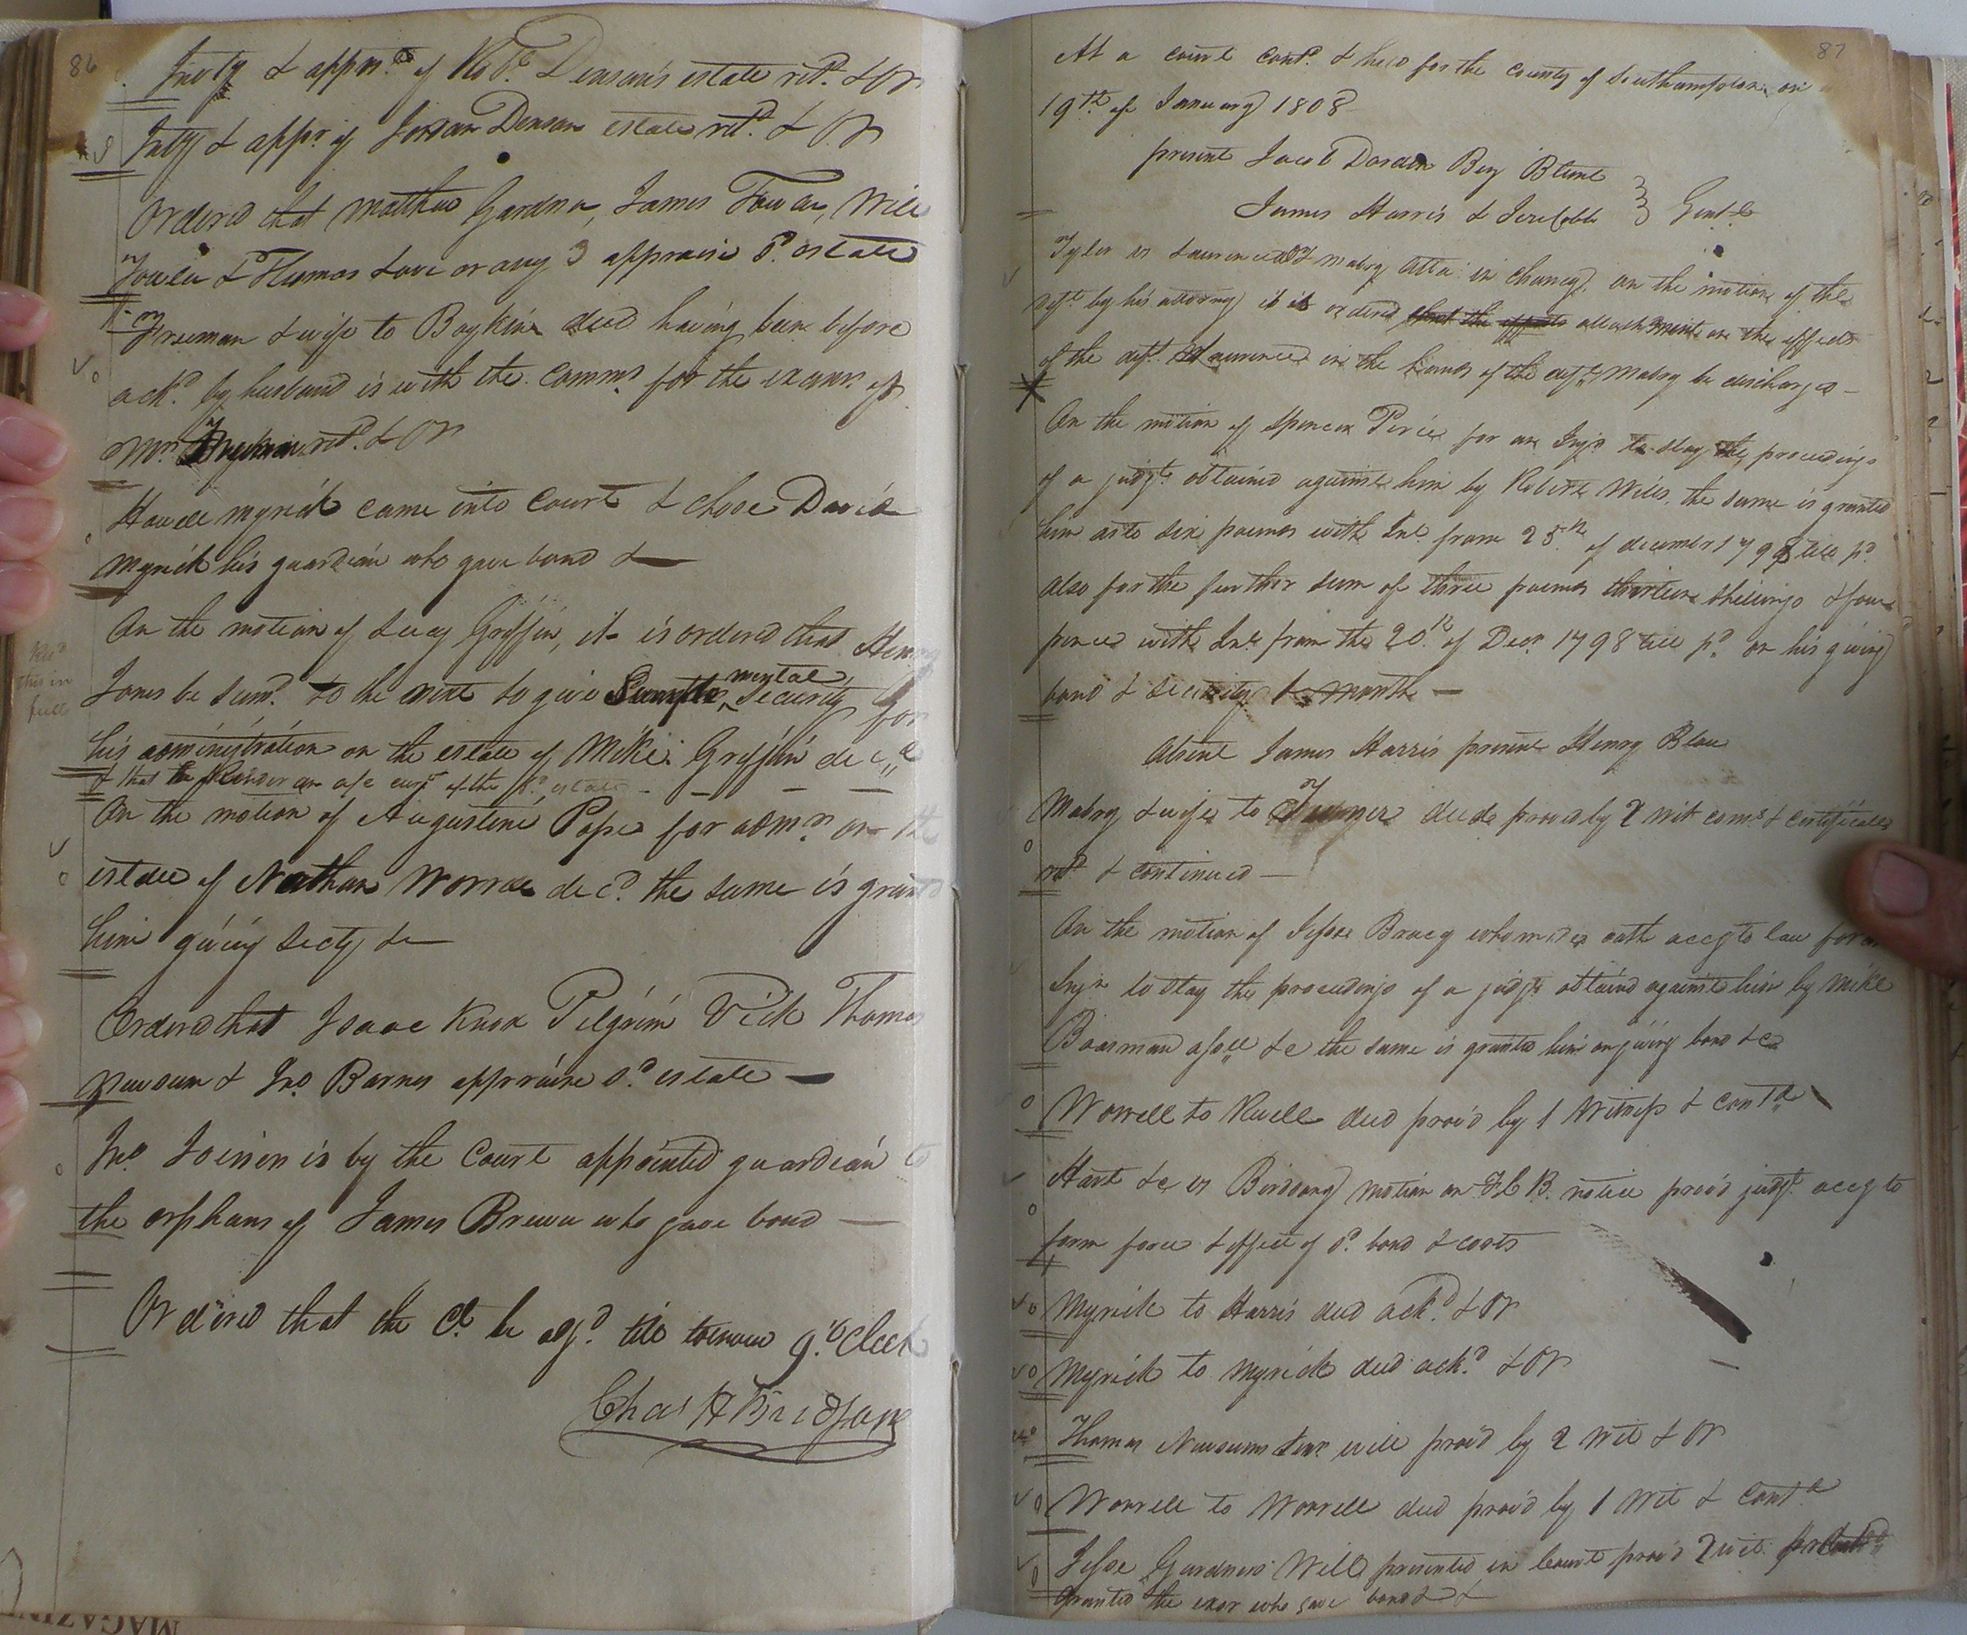 86
Invty & appmt of Robt. Denson's estate retd. & Or
Invty & appr. of Jordan Denson estate retd. & Or
Ordered that Matthew Gardner, James Fowler, Will
Fowler & Thomas Love or any 3 appraise sd. estate
Freeman & wife to Boykin deed having been before
ackd. by husband is with the comms for the exam of
Mrs. Freeman retd. & Or
Howell Myrick came into Court & chose David
Myrick his guardian who gave bond &
On the motion of Lucy Griffin, it is ordered that Henry
Recd this in full
Jones be sumd. to the next to give mental Security for
his administration on the estate of Mike: Griffin decd
& that he of the sd. estate
On the motion of Augustine Pope for admn. on the
estate of Nathan Worrell decd. the same is granted
him giving secty &
Ordered that Isaac Knox Pilgrim Vick Thomas
Newsum & Jno. Barnes appraise sd. estate
Jno. Joiner is by the Court appointed guardian to
the orphans of James Brewer who gave bond
Ordered that the Ct. be adjd. till tomorrow 9 oClock
Chas H Bridgane
87
At a court contd. & held for the county of Southampton on
19th of January 1808
present Jacob Darden Benj Blunt
James Harris & Jere Cobb Gentle
Tyler vs Lawrence & Mabry Atta: in chancy. on the motion of the
deft. by his attorney it is ordered that the effects attachment on the effects
of the deft. Lawrence in the hands of the deft. Mabry be discharged
On the motion of Spencer Pierce for an Injn to stay the proceedings
of a judgt. obtained against him by Robert Wills, the same is granted
him as to six pounds with Int. from 25th of december 179 till pd.
also for the further sum of three pounds thirteen shillings & four
pence with Int. from the 20th of Decr 1798 till pd. on his giving
bond & security 1 month
Absent James Harris present Henry Blow
Mabry & wife to Turner deed proved by 2 wit coms & certificate
retd & continued
On the motion of Jesse Bracy who made oath accg to law for an
Injn to stay the proceedings of a judgt. obtained against him by Mike
Boasman assee &c the same is granted him on giving bond &c
Worrell to Ruell deed prov'd by 1 Witness & contd
Hart &c vs Birdsong motion on F C B. notice prov'd judgt. accg to
form force & effect of sd. bond & costs
Myrick to Harris deed ackd. & Or
Myrick to Myrick deed ackd. & Or
Thomas Newsums Senr. will prov'd by 2 wit & Or
Worrell to Worrell deed prov'd by 1 Wit & contd
Jesse Gardners Will presented in Court prov'd 2 wit.
granted the exor who gave bond &
MAGAZIN